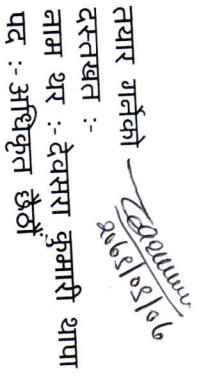 तयार गर्नेको
दस्तखत :-
नाम थर :- देवसरा कुमारी थापा
पद :- अधिकृत छैठौं